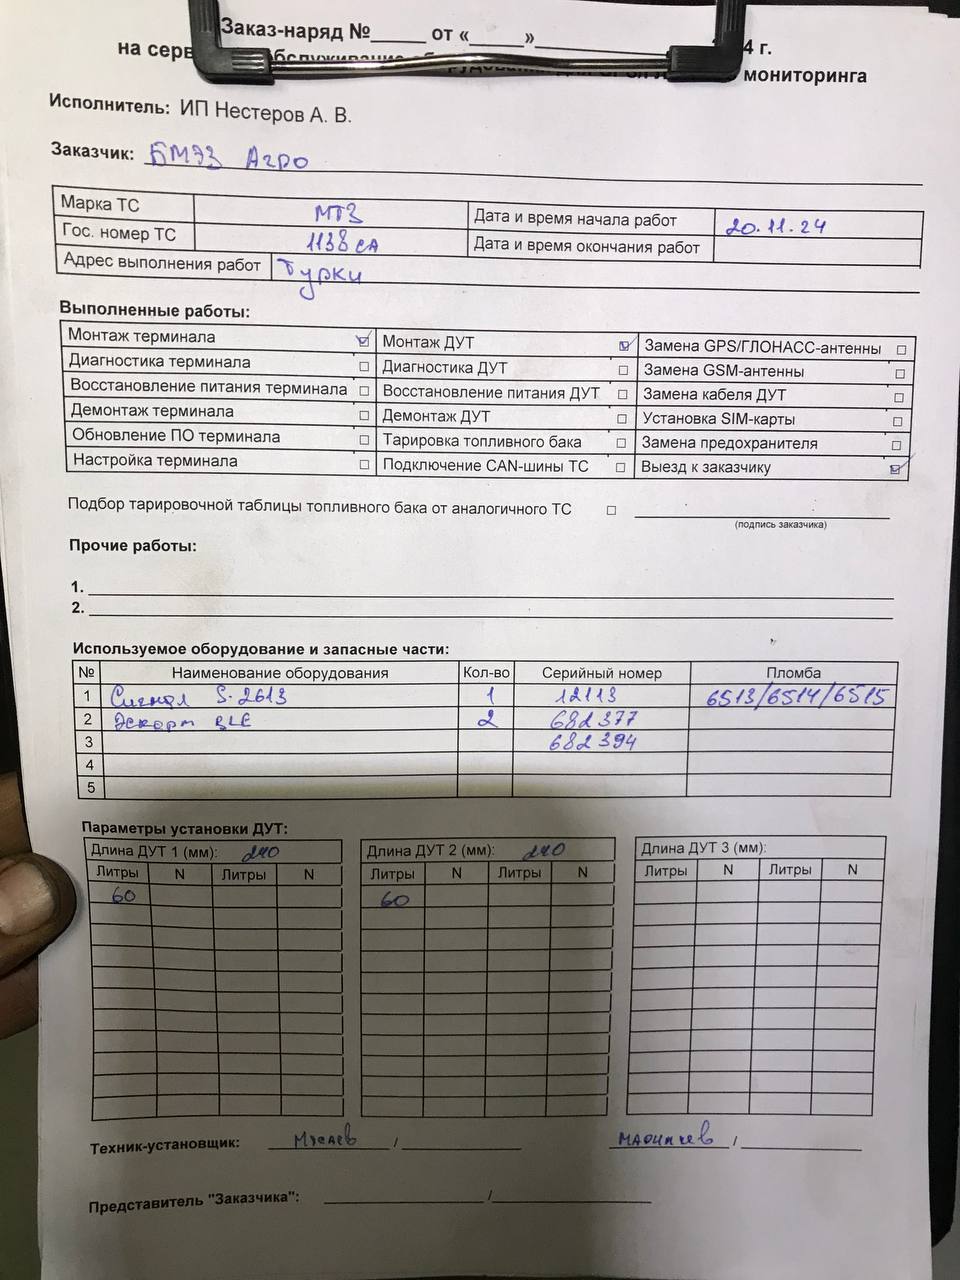 Заказ-наряд №_____ от «_____»_______________ 4 г.
на серв обслуживание мониторинга
Исполнитель: ИП Нестеров А. В.
Заказчик: БМЭЗ Агро
Марка ТС МТЗ Дата и время начала работ 20.11.24
Гос. номер ТС 1138 СА Дата и время окончания работ
Адрес выполнения работ Турки
Выполненные работы:
Монтаж терминала ☑ Монтаж ДУТ ☑ Замена GPS/ГЛОНАСС-антенны ☐
Диагностика терминала ☐ Диагностика ДУТ ☐ Замена GSM-антенны ☐
Восстановление питания терминала ☐ Восстановление питания ДУТ ☐ Замена кабеля ДУТ ☐
Демонтаж терминала ☐ Демонтаж ДУТ ☐ Установка SIM-карты ☐
Обновление ПО терминала ☐ Тарировка топливного бака ☐ Замена предохранителя ☐
Настройка терминала ☐ Подключение CAN-шины ТС ☐ Выезд к заказчику ☑
Подбор тарировочной таблицы топливного бака от аналогичного ТС ☐
(подпись заказчика)
Прочие работы:
1.
2.
Используемое оборудование и запасные части:
№ Наименование оборудования Кол-во Серийный номер Пломба
1 Сигнал S-2613 1 12113 6513/6514/6515
2 Эскорт BLE 2 682377
3 682394
4
5
Параметры установки ДУТ:
Длина ДУТ 1 (мм): 240 Длина ДУТ 2 (мм): 240 Длина ДУТ 3 (мм):
Литры N Литры N Литры N Литры N Литры N Литры N
60 60
Техник-установщик: / /
Представитель "Заказчика": /